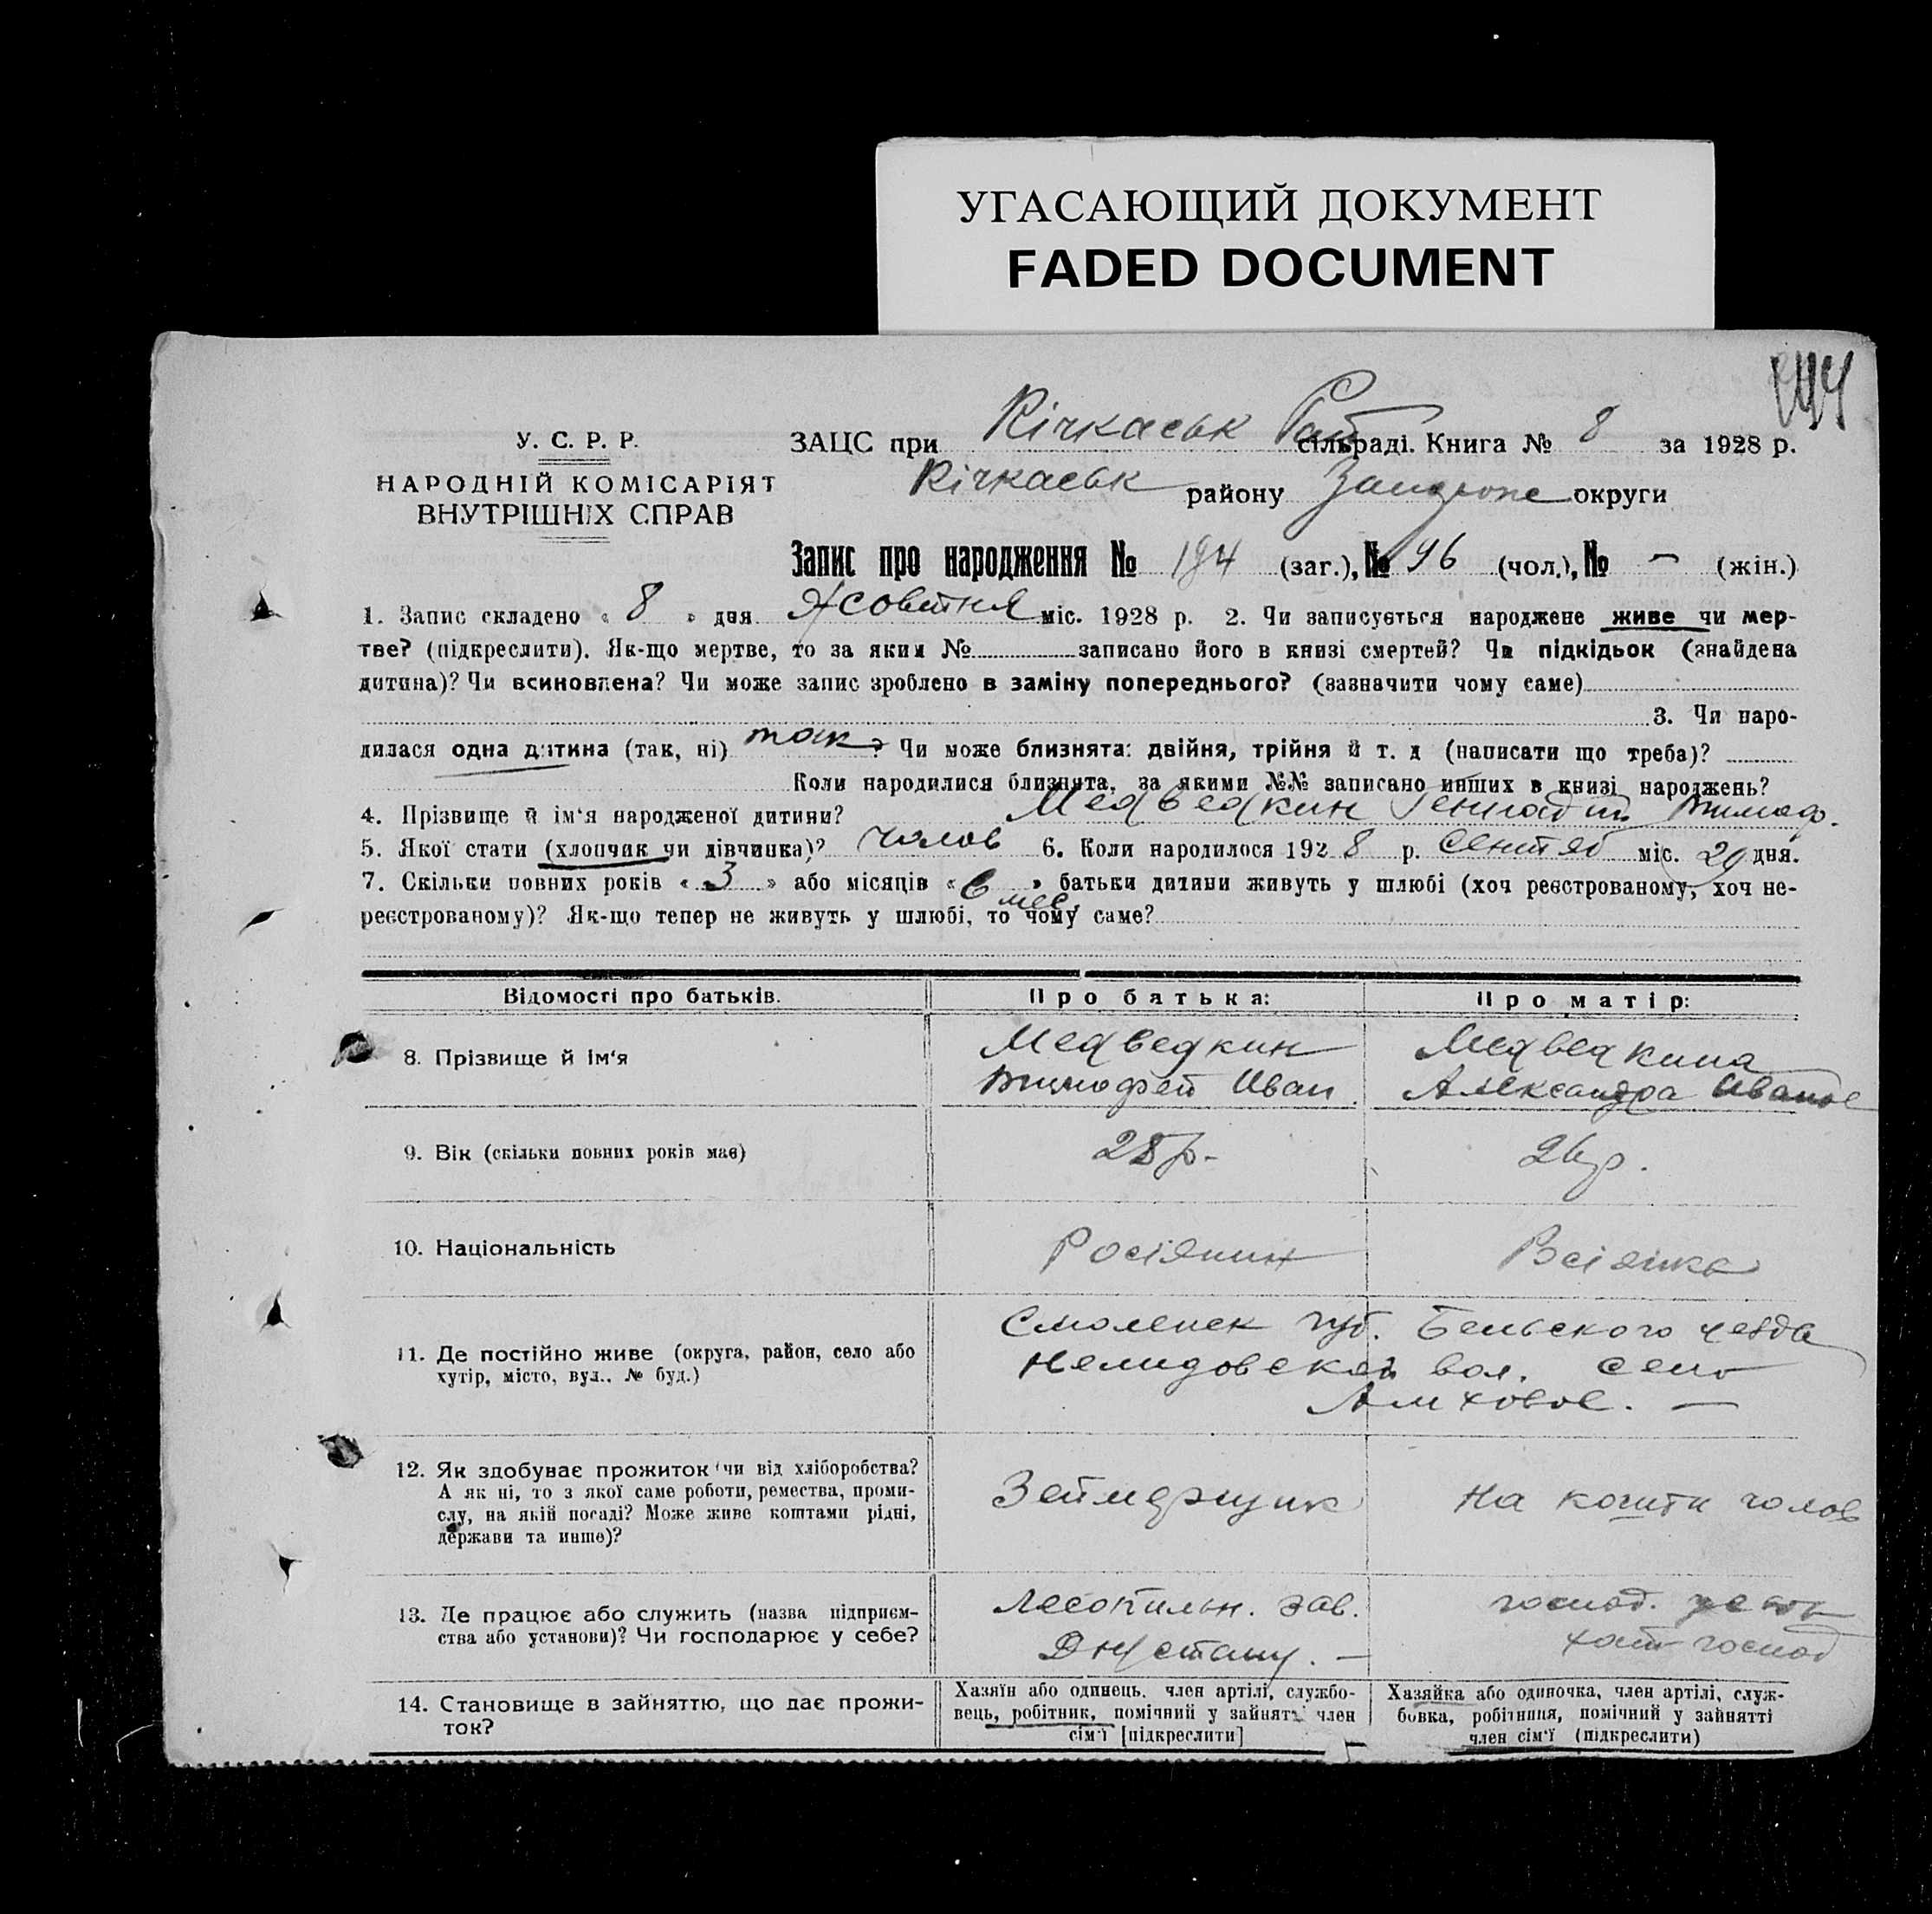 УГАСАЮЩИЙ ДОКУМЕНТ
FADED DOCUMENT
У. С. Р. Р.
НАРОДНІЙ КОМІСАРІЯТ
ВНУТРІШНІХ СПРАВ
ЗАЦС при Кічкаськ сільраді. Книга № 8 за 1928 р.
Кічкаськ району округи
Запис про народження № 194 (заг.), № 96 (чол.), № — (жін.)
1. Запис складено « 8 » дня Жовтня міс. 1928 р. 2. Чи записується народжене живе чи мер-
тве? (підкреслити). Як-що мертве, то за яким № записано його в книзі смертей? Чи підкідьок (знайдена
дитина)? Чи всиновлена? Чи може запис зроблено в заміну попереднього? (зазначити чому саме)
3. Чи наро-
дилася одна дитина (так, ні) так ? Чи може близнята: двійня, трійня й т. д (написати що треба)?
Коли народилися близнята, за якими №№ записано инших в книзі народжень?
4. Прізвище й ім'я народженої дитини? Медведкин Геннадий Тимоф.
5. Якої стати (хлопчик чи дівчинка)? чолов 6. Коли народилося 1928 р. Сентяб міс. 20 дня.
7. Скільки повних років « 3 » або місяців « 6 мес » батьки дитини живуть у шлюбі (хоч реєстрованому, хоч не-
реєстрованому)? Як-що тепер не живуть у шлюбі, то чому саме?
Відомості про батьків.
Про батька:
Про матір:
8. Прізвище й ім'я
Медведкин
Тимофей Иван
Медведкина
Александра Иванов
9. Вік (скільки повних років має)
28 р.
26 р.
10. Національність
Росіянин
11. Де постійно живе (округа, район, село або
хутір, місто, вул.. № буд.)
Смоленск губ. Бельского уезда
Нелидовской вол. село
12. Як здобуває прожиток чи від хліборобства?
А як ні, то з якої саме роботи, ремества, проми-
слу, на якій посаді? Може живе коштами рідні,
держави та инше)?
На кошти чолов
13. Де працює або служить (назва підприєм-
ства або установи)? Чи господарює у себе?
Лесопильн. зав.
господ.
14. Становище в зайняттю, що дає прожи-
ток?
Хазяїн або одинець. член артілі, службо-
вець, робітник, помічний у зайнятті член
сім'ї [підкреслити]
Хазяйка або одиночка, член артілі, служ-
бовка, робітниця, помічний у зайнятті
член сім'ї (підкреслити)